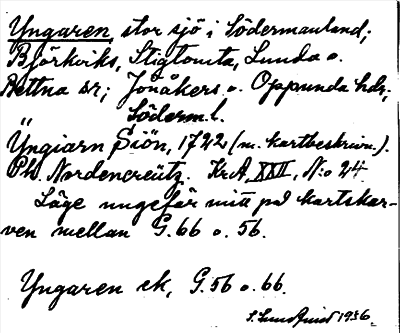 Yngaren, stor sjö i Södermanland;
Björkviks, Stigtomta, Lunda o.
Bettna sr; Jönåkers o. Oppunda hdr;
Söderm.l.
Ÿngiarn Siön, 1722 (m. kartbeskrivn.).
Ph. Nordencreütz. Kr.A, XXII, N:o 24.
Läge ungefär mitt på kartskar-
ven mellan G.66 o. 56.
Yngaren ek, G.56 o. 66.
S. Lundquist 1936.